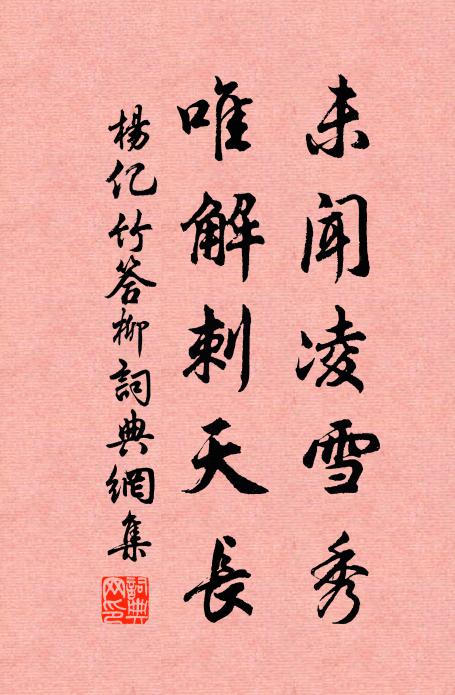 未闻凌雪秀
唯解刺天长
楊亿竹答柳詞典網集
詞典網印